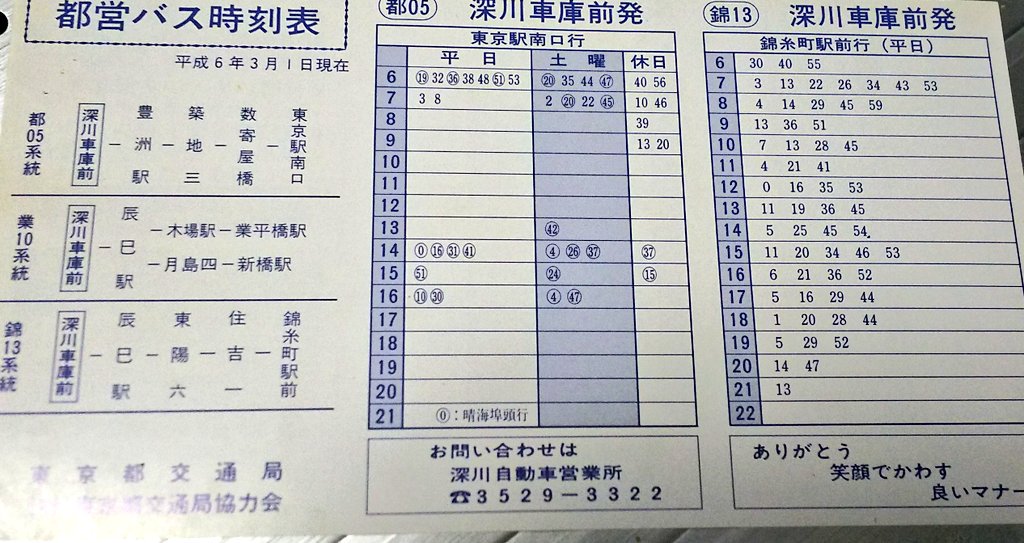 都営バス時刻表
平成6年3月1日現在
都05系統
深川車庫前－豊洲駅－築地三－数寄屋橋－東京駅南口
業10系統
深川車庫前－辰巳駅
－木場駅－業平橋駅
－月島四－新橋駅
錦13系統
深川車庫前－辰巳駅－東陽六－住吉一－錦糸町駅前
東京都交通局
京都交通局協力会
都05 深川車庫前発
東京駅南口行
平日 土曜 休日
6 ⑲ 32 ㊱ 38 48 51 53 ⑳ 35 44 ㊼ 40 56
7 3 8 2 ⑳ 22 ㊺ 10 46
8 39
9 13 20
10
11
12
13 ㊷
14 ⓪ ⑯ ㉛ ㊶ ④ ㉖ ㊲ ㊲
15 51 ㉔ ⑮
16 ⑩ ㉚ ④ ㊼
17
18
19
20
21 ⓪：晴海埠頭行
お問い合わせは
深川自動車営業所
☎3529－3322
錦13 深川車庫前発
錦糸町駅前行（平日）
6 30 40 55
7 3 13 22 26 34 43 53
8 4 14 29 45 59
9 13 36 51
10 7 13 28 45
11 4 21 41
12 0 16 35 53
13 11 19 36 45
14 5 25 45 54
15 11 20 34 46 53
16 6 21 36 52
17 5 16 29 44
18 1 20 28 44
19 5 29 52
20 14 47
21 13
22
ありがとう
笑顔でかわす
良いマナー